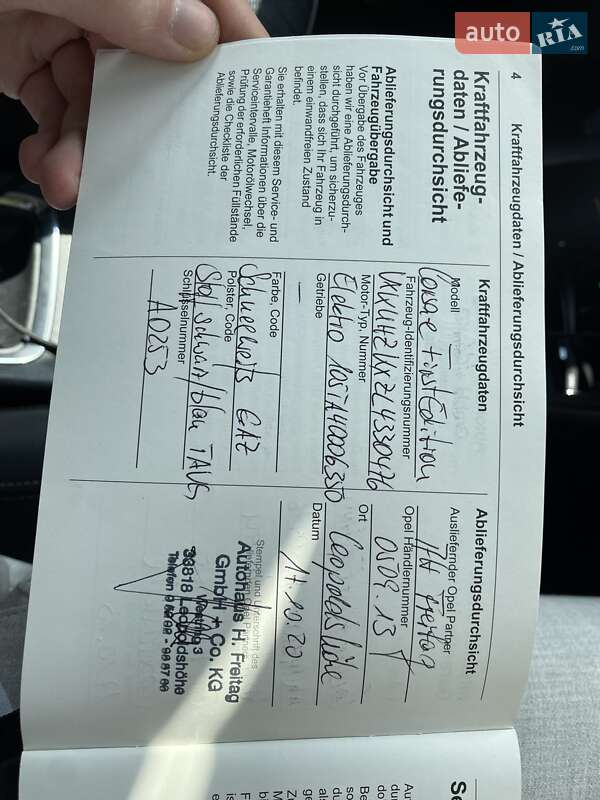 auto RIA.com
4
Kraftfahrzeugdaten / Ablieferungsdurchsicht
Kraftfahrzeug-
daten / Abliefe-
rungsdurchsicht
Ablieferungsdurchsicht und
Fahrzeugübergabe
Vor Übergabe des Fahrzeuges
haben wir eine Ablieferungsdurch-
sicht durchgeführt, um sicherzu-
stellen, dass sich Ihr Fahrzeug in
einem einwandfreien Zustand
befindet.
Sie erhalten mit diesem Service- und
Garantieheft Informationen über die
Serviceintervalle, Motorölwechsel,
Prüfung der erforderlichen Füllstände
sowie die Checkliste der
Ablieferungsdurchsicht.
Kraftfahrzeugdaten
Modell
Corsa-e First Edition
Fahrzeug-Identifizierungsnummer
Motor-Typ, Nummer
Elektro
Getriebe
—
Farbe, Code
Schneeweiß
Polster, Code
Stoff schwarz/blau
Schlüsselnummer
A0253
Ablieferungsdurchsicht
Ausliefernder Opel Partner
AH Freitag
Opel Händlernummer
0509.13
Ort
Leopoldshöhe
Datum
17.10.20
Stempel und Unterschrift des
Autohaus H. Freitag
GmbH + Co. KG
33818 Leopoldshöhe